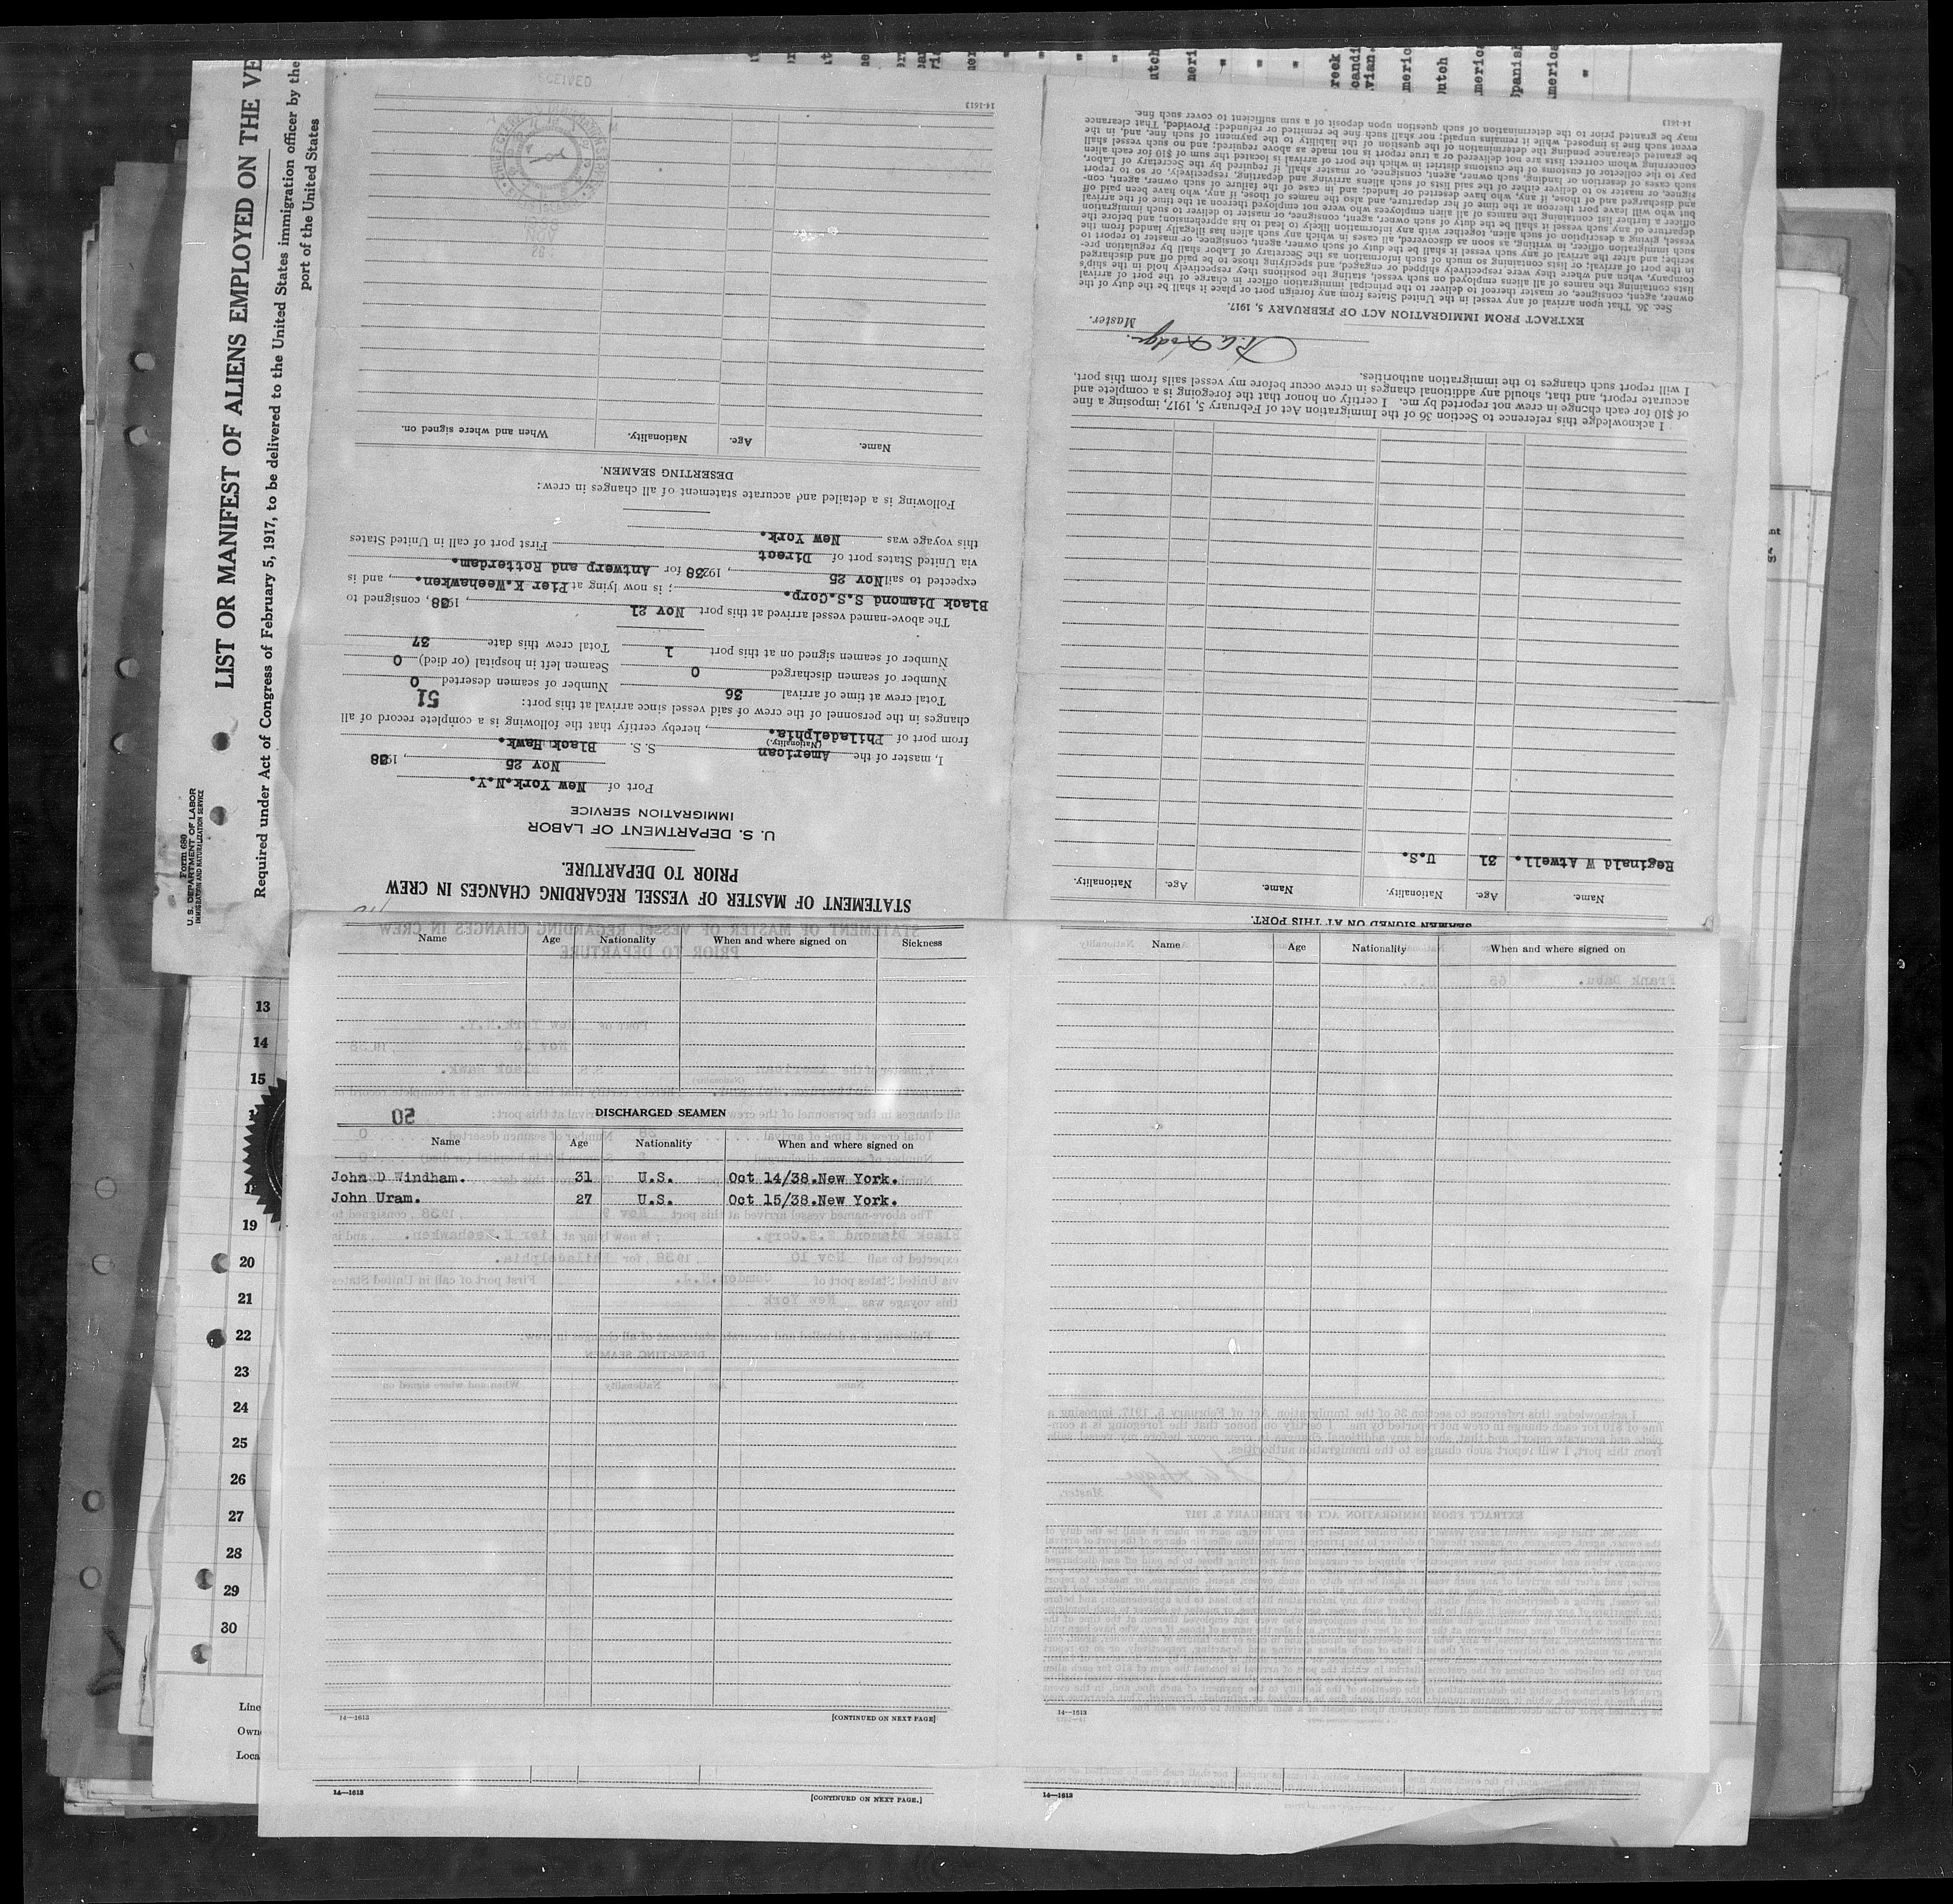 Form 680
U. S. DEPARTMENT OF LABOR
IMMIGRATION AND NATURALIZATION SERVICE
LIST OR MANIFEST OF ALIENS EMPLOYED ON THE VE
Required under Act of Congress of February 5, 1917, to be delivered to the United States immigration officer by the
port of the United States
STATEMENT OF MASTER OF VESSEL REGARDING CHANGES IN CREW
PRIOR TO DEPARTURE.
U. S. DEPARTMENT OF LABOR
IMMIGRATION SERVICE
Port of New York.N.Y.
Nov 25, 1938
I, master of the American S. S. Black Hawk.
(Nationality)
from port of Philadelphia., hereby certify that the following is a complete record of all
changes in the personnel of the crew of said vessel since arrival at this port:
51
Total crew at time of arrival 36 Number of seamen deserted 0
Number of seamen discharged 0 Seamen left in hospital (or died) 0
Number of seamen signed on at this port 1 Total crew this date 37
The above-named vessel arrived at this port Nov 21, 1938, consigned to
Black Diamond S.S.Corp.; is now lying at Pier K.Weehawken., and is
expected to sail Nov 25, 1938 for Antwerp and Rotterdam.
via United States port of Direct First port of call in United States
this voyage was New York.
Following is a detailed and accurate statement of all changes in crew:
DESERTING SEAMEN.
Name. Age. Nationality. When and where signed on.
14-1613
SEAMEN SIGNED ON AT THIS PORT.
Name. Age. Nationality. Name. Age. Nationality.
Reginald W Atwell. 31 U.S.
I acknowledge this reference to Section 36 of the Immigration Act of February 5, 1917, imposing a fine
of $10 for each change in crew not reported by me. I certify on honor that the foregoing is a complete and
accurate report, and that, should any additional changes in crew occur before my vessel sails from this port,
I will report such changes to the immigration authorities.
Master.
EXTRACT FROM IMMIGRATION ACT OF FEBRUARY 5, 1917.
Sec. 36. That upon arrival of any vessel in the United States from any foreign port or place it shall be the duty of the
owner, agent, consignee, or master thereof to deliver to the principal immigration officer in charge of the port of arrival
lists containing the names of all aliens employed on such vessel, stating the positions they respectively hold in the ship's
company, when and where they were respectively shipped or engaged, and specifying those to be paid off and discharged
in the port of arrival; or lists containing so much of such information as the Secretary of Labor shall by regulation pre-
scribe; and after the arrival of any such vessel it shall be the duty of such owner, agent, consignee, or master to report to
such immigration officer, in writing, as soon as discovered, all cases in which any such alien has illegally landed from the
vessel, giving a description of such alien, together with any information likely to lead to his apprehension; and before the
departure of any such vessel it shall be the duty of such owner, agent, consignee, or master to deliver to such immigration
officer a further list containing the names of all alien employees who were not employed thereon at the time of the arrival
but who will leave port thereon at the time of her departure, and also the names of those, if any, who have been paid off
and discharged and of those, if any, who have deserted or landed; and in case of the failure of such owner, agent, con-
signee, or master so to deliver either of the said lists of such aliens arriving and departing, respectively, or so to report
such cases of desertion or landing, such owner, agent, consignee, or master shall, if required by the Secretary of Labor,
pay to the collector of customs of the customs district in which the port of arrival is located the sum of $10 for each alien
concerning whom correct lists are not delivered or a true report is not made as above required; and no such vessel shall
be granted clearance pending the determination of the question of the liability to the payment of such fine, and, in the
event such fine is imposed, while it remains unpaid; nor shall such fine be remitted or refunded: Provided, That clearance
may be granted prior to the determination of such question upon deposit of a sum sufficient to cover such fine.
14-1613
Name Age Nationality When and where signed on Sickness
DISCHARGED SEAMEN
50
Name Age Nationality When and where signed on
John D Windham. 31 U.S. Oct 14/38.New York.
John Uram. 27 U.S. Oct 15/38.New York.
14—1613 [CONTINUED ON NEXT PAGE]
Name Age Nationality When and where signed on
14—1613
13
14
15
19
20
21
22
23
24
25
26
27
28
29
30
Line
Own
Loca
14—1613 [CONTINUED ON NEXT PAGE.]
14—1613